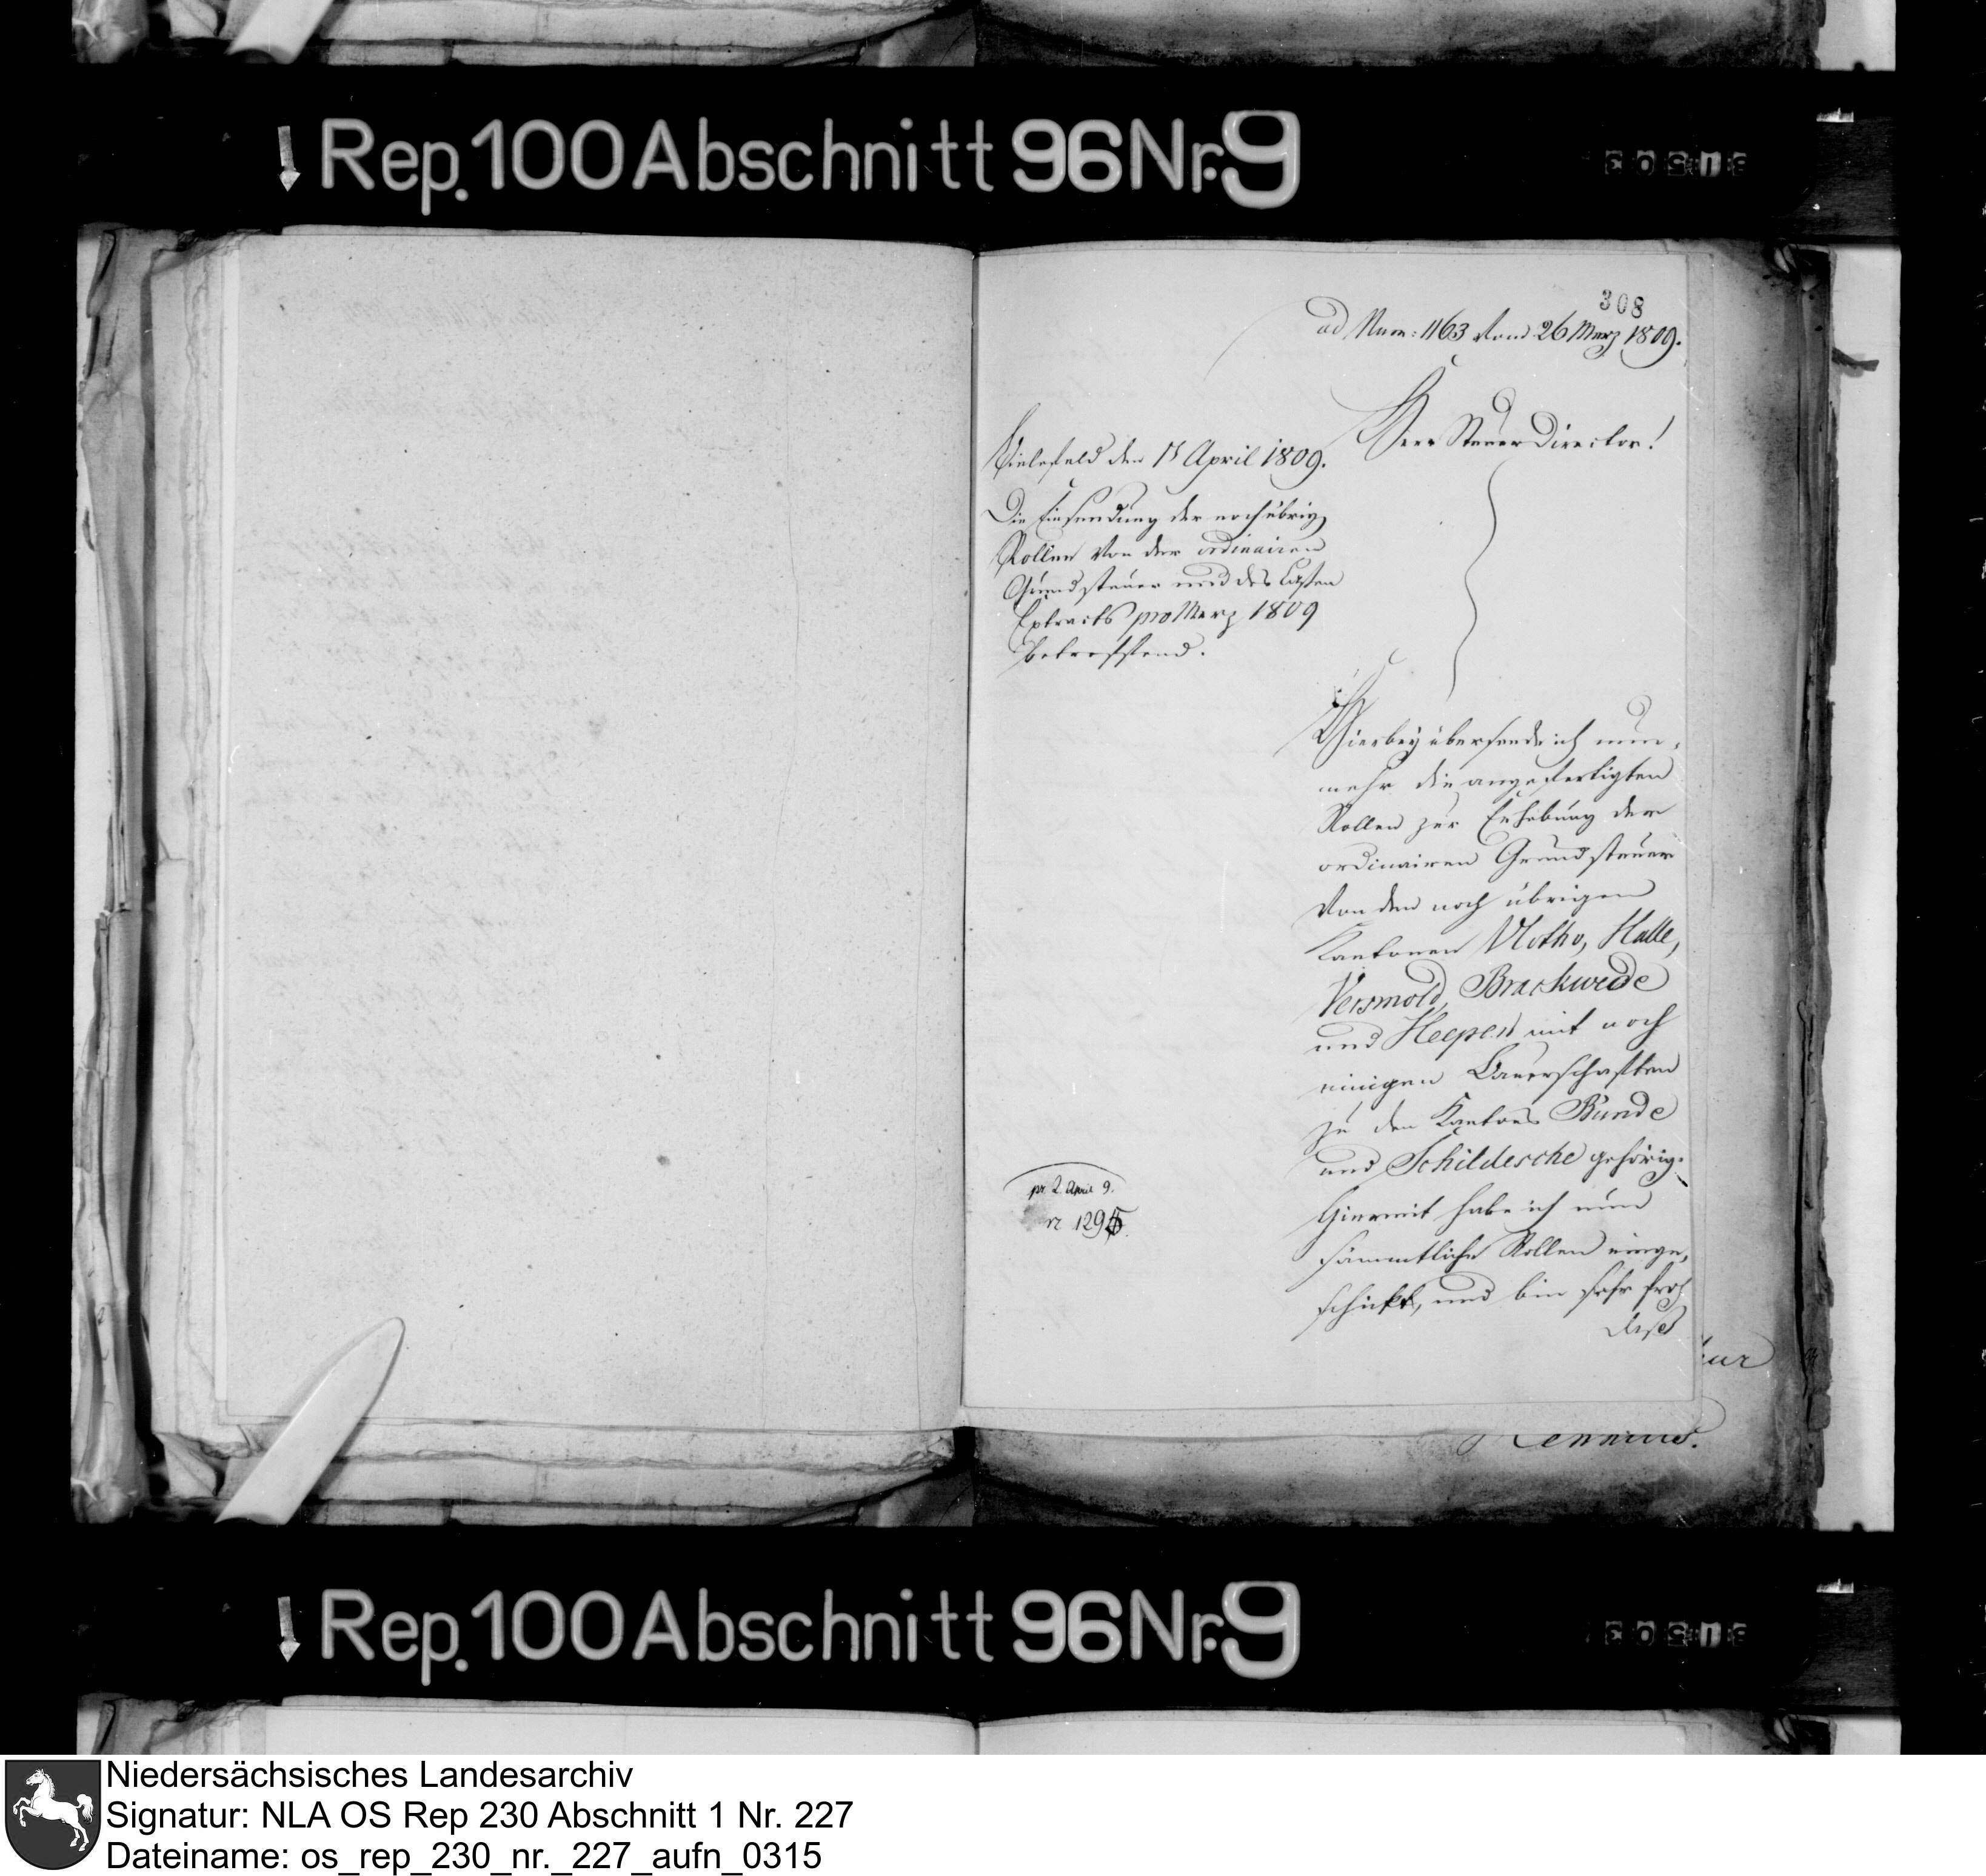 Rep. 100 Abschnitt 96 Nr. 9
308
ad Num: 1163 vom 26 Merz 1809.
Herr Steuer Director!
Bielefeld den 1t April 1809.
Die Einsendung der noch übrig
Rollen von der ordinairen
Grundsteuer und des Cassen
Extracts pro Merz 1809
betreffend.
Hierbey übersende ich nun,
mehr die angefertigten
Rollen zur Erhebung der
ordinairen Grundsteuer
von den noch übrigen
Kantonen Vlotho, Halle,
Versmold, Brackwede
und Heepen mit noch
einigen Bauerschaften
zu den Kantons Bünde
und Schildesche gehörig.
Hiermit habe ich nun
sämmtliche Rollen einge,
schickt, und bin sehr froh
daß
pr. 2 April 9.
n 1295.
Rep. 100 Abschnitt 96 Nr. 9
Niedersächsisches Landesarchiv
Signatur: NLA OS Rep 230 Abschnitt 1 Nr. 227
Dateiname: os_rep_230_nr._227_aufn_0315